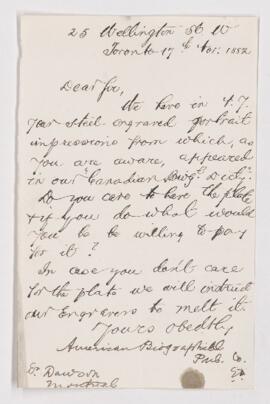 25 Wellington St W
Toronto 17th Nov: 1882
Dear Sir,
We have in N.Y.
your steel-engraved portrait
impressions from which, as
you are aware, appeared
in our Canadian Biog. Dict.
Do you care to have the plate
& if you do what would
you be willing to pay
for it?
In case you don't care
for the plate we will instruct
our Engravers to melt it.
Yours obedtly
American Biographical
Pub. Co.
Dawson
Montreal